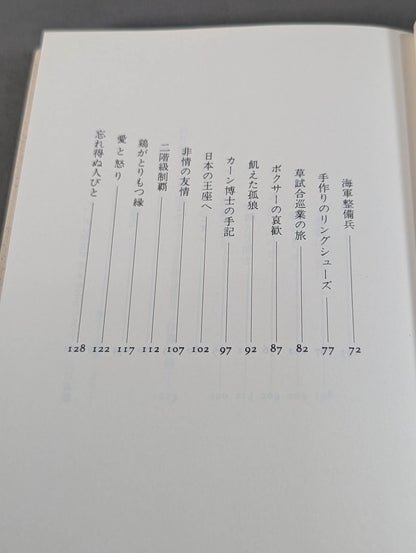 海軍整備兵 72
手作りのリングシューズ 77
草試合巡業の旅 82
ボクサーの哀歓 87
飢えた孤狼 92
カーン博士の手記 97
日本の王座へ 102
非情の友情 107
二階級制覇 112
鶏がとりもつ縁 117
愛と怒り 122
忘れ得ぬ人びと 128